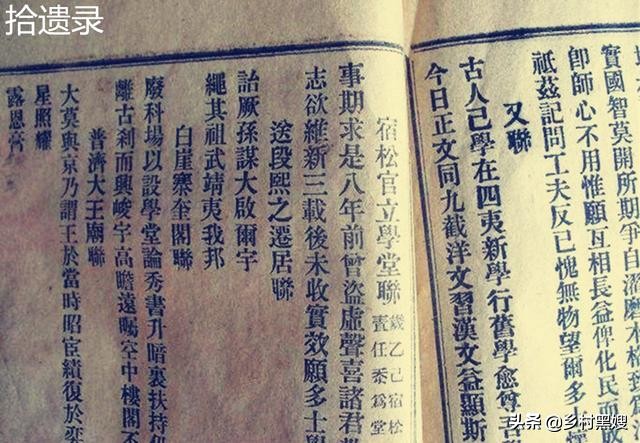 拾遗录
實國智莫開所期爭自濯磨
卽師心不用惟願互相長益俾化民而
祗茲記問工夫反己愧無物望爾多士
又聯
古人已學在四夷新學行舊學愈尊
今日正文同九截洋文習漢文益顯斯
宿松官立學堂聯
歲乙己宿松
責任忝爲堂
事期求是八年前曾盜虛聲喜諸君
志欲維新三載後未收實效願多士
送段熙之遷居聯
詒厥孫謀大啟爾宇
繩其祖武靖夷我邦
白崖寨奎閣聯
廢科場以設學堂論秀書升暗裏扶持
離古刹而興峻宇高瞻遠矚空中樓閣不
普濟大王廟聯
大莫與京乃謂王於當時昭宦績復於奕
星照耀
露恩膏
头条 @乡村黑嫂